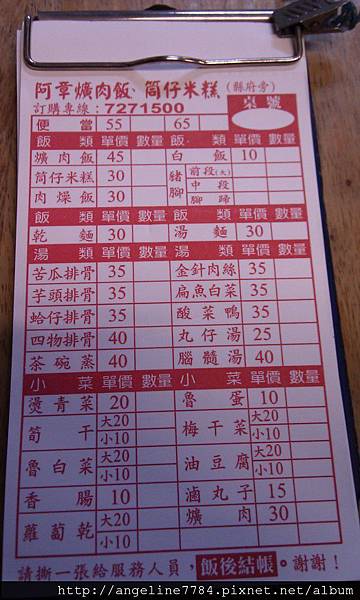 阿章爌肉飯、筒仔米糕(縣府旁)
訂購專線：7271500
桌號
便當 55 65
飯類 單價 數量 飯類 單價 數量
爌肉飯 45 白飯 10
筒仔米糕 30 豬腳 前段(大)
中段
肉燥飯 30 腳蹄
飯類 單價 數量 飯類 單價 數量
乾麵 30 湯麵 30
湯類 單價 數量 湯類 單價 數量
苦瓜排骨 35 金針肉絲 35
芋頭排骨 35 扁魚白菜 35
蛤仔排骨 35 酸菜鴨 35
四物排骨 40 丸仔湯 25
茶碗蒸 40 腦髓湯 40
小菜 單價 數量 小菜 單價 數量
燙青菜 20 魯蛋 10
筍干 大20 小10 梅干菜 大20 小10
魯白菜 大20 小10 油豆腐 大20 小10
香腸 10 滷丸子 15
蘿蔔乾 大20 小10 爌肉 30
請撕一張給服務人員，飯後結帳。謝謝！
http://angeline7784.pixnet.net/album